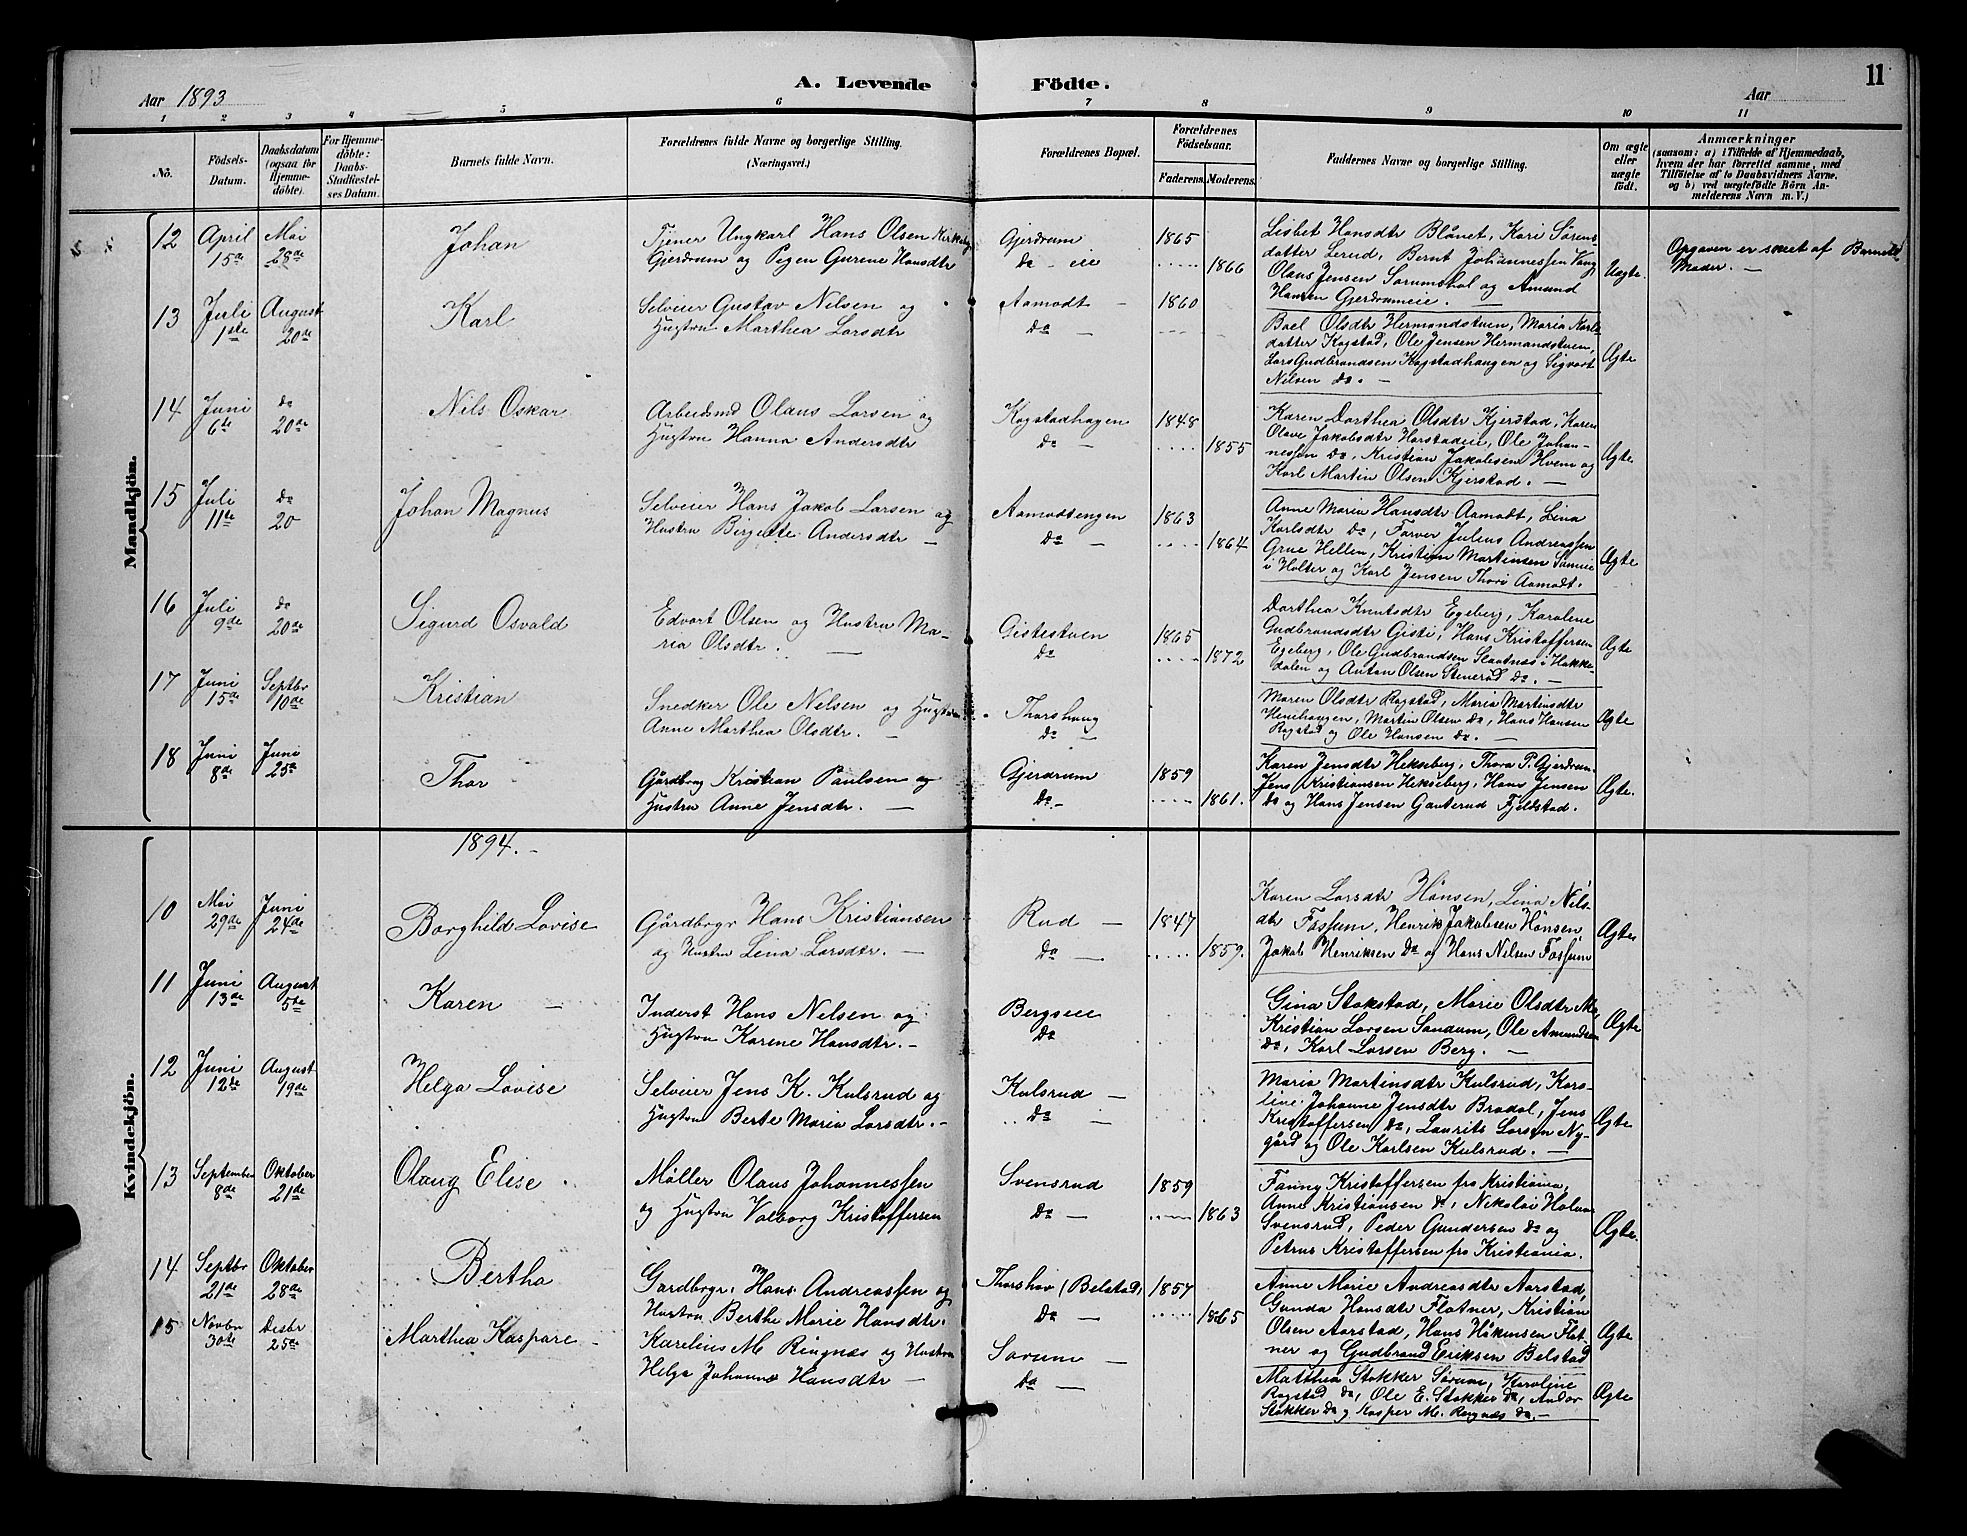 A. Levende Födte.
11
Aar 1893
Aar
1 2 3 4 5 6 7 8 9 10 11
No.
Födsels-
Datum.
Daabsdatum
(ogsaa for
Hjemme-
döbte).
For Hjemme-
döbte:
Daabs-
Stadfæstel-
ses Datum.
Barnets fulde Navn.
Forældrenes fulde Navne og borgerlige Stilling.
(Næringsvei.)
Forældrenes Bopæl.
Forældrenes
Födselsaar.
Faderens.
Moderens.
Faddernes Navne og borgerlige Stilling.
Om ægte
eller
uægte
födt.
Anmærkninger
(saasom: a) i Tilfælde af Hjemmedaab,
hvem der har forrettet samme, med
Tilföielse af to Daabsvidners Navne,
og b) ved uægtefödte Börn An-
melderens Navn m. V.)
Mandkjön.
12
April
15de
Mai
28de
Johan
Tjener Ungkarl Hans Olsen Kirkeby
Gjerdrum og Pigen Gurene Hansdtr
Gjerdrum
Do - eie
1865
1866
Lisbet Hansdtr Blånet, Kari Sørens-
datter Lerud, Bernt Johannessen Vang
Olaus Jensen Sørumskol og Amund
Hansen Gjerdrumeie. —
Uægte.
Opgaven er sket af Barnets
Moder. —
13
Juli
1ste
August
20de
Karl
Selveier Gustav Nilsen og
Hustru Marthea Larsdtr
Aamodt -
Do -
1860
Boel Olsdtr Hermandstuen, Maria Karls-
datter Kogstad, Ole Jensen Hermandstuen,
Lars Gudbrandsen Kogstadhaugen og Sigvart
Nilsen Do. —
Ægte
14
Juni
6te
Do
20de
Nils Oskar
Arbeidsmd Olaus Larsen og
Hustru Hanna Andersdtr
Kogstadhagen
Do -
1848
1855
Karen Dorthea Olsdtr Kjerstad, Karen
Olave Jakobsdtr Harstadeie, Ole Johan-
nessen Do, Kristian Jakobsen Hvem og
Karl Martin Olsen Kjerstad. —
Ægte
15
Juli
11te
Do
20
Johan Magnus
Selveier Hans Jakob Larsen og
Hustru Birgette Andersdtr —
Aamodtengen
Do -
1863
1864
Anne Maria Hansdtr Aamodt, Lina
Karlsdtr Do, Farver Julius Andreassen
Grue Hellen, Kristian Martinsen
i Holter og Karl Jensen Thori Aamodt.
Ægte
16
Juli
9de
Do
20de
Sigurd Osvald
Edvart Olsen og Hustru Ma-
ria Olsdtr. —
Gistestuen
Do
1865
1872
Dorthea Knutsdtr Egeberg, Karoline
Gudbrandsdtr Gisti, Hans Kristoffersen
Egeberg, Ole Gudbrandsen Slaatnes i Hakke-
dalen og Anton Olsen Stenerud Do. —
Ægte
17
Juni
15de
Septbr
10de
Kristian
Snedker Ole Nelsen og Hustru
Anne Marthea Olsdtr. —
Thorshaug
Do -
Maren Olsdtr Rogstad, Maria Martinsdtr
Henihaugen, Martin Olsen Do, Hans Hansen
Rogstad og Ole Hansen Do. —
Ægte
18
Juni
8de
Juni
25de
Thor
Gårdbrug Kristian Paulsen og
Hustru Anne Jensdtr. —
Gjerdrum
Do -
1859
1861.
Karen Jensdtr Hekseberg, Thora P. Gjerdrum
Jens Kristiansen Hekseberg, Hans Jensen
Do og Hans Jensen Gauterud Fjeldstad.
Ægte.
Kvindekjön.
1894. -
10
Mai
29de
Juni
24de
Borghild Lovise
Gårdbrgr Hans Kristiansen
og Hustru Lina Larsdtr. —
Rud -
Do —
1847
1859.
Karen Larsdtr Hønsen, Lina Nils-
dtr Fossum, Henrik Jakobsen Hønsen
Jakob Henriksen Do og Hans Nilsen Fossum
Ægte
11
Juni
13de
August
5te
Karen —
Inderst Hans Nelsen og
Hustru Karene Hansdtr. -
Bergseie
Do
Gina Stokstad, Marie Olsdtr
Kristian Larsen Sandum, Ole Amundsen
Do, Karl Larsen Berg. —
Ægte
12
Juni
12te
August
19de
Helga Lovise
Selveier Jens K. Kulsrud og
Hustru Berte Maria Larsdtr. -
Kulsrud -
Do —
Maria Martinsdtr Kulsrud, Karo-
line Johanne Jensdtr Bradal, Jens
Kristoffersen Do, Laurits Larsen Ny-
gård og Ole Karlsen Kulsrud. —
Ægte
13
September
8de
Oktober
21de
Olaug Elise
Møller Olaus Johannessen
og Hustru Valborg Kristoffersen
Svensrud
Do -
1859
1863
Fanny Kristoffersen fra Kristiania,
Anne Kristiansen Do, Nikolai Halvor
Svensrud, Peder Gundersen Do og
Petrus Kristoffersen fra Kristiania.
Ægte.
14
Septbr
21de
Oktober
28de
Bertha
Gardbrgr. Hans Andreassen og
Hustru Berthe Marie Hansdtr.
Thorshov (Belstad)
Do —
1857
1865
Anne Marie Andreasdtr Aarstad,
Gunda Hansdtr Flatner, Kristian
Olsen Aarstad, Hans Håkensen Flat-
ner og Gudbrand Eriksen Belstad
Ægte
15
Novbr
30te
Desbr
25de
Marthea Kaspare -
Karelius M. Ringnæs og Hustru
Helga Johanne Hansdtr —
Sørum -
Do —
Matthea Stokker Sørum, Karoline
Rogstad Do, Ole E. Stokker Do, Andor
Stokker Do og Kasper M. Ringnæs Do. -
Ægte